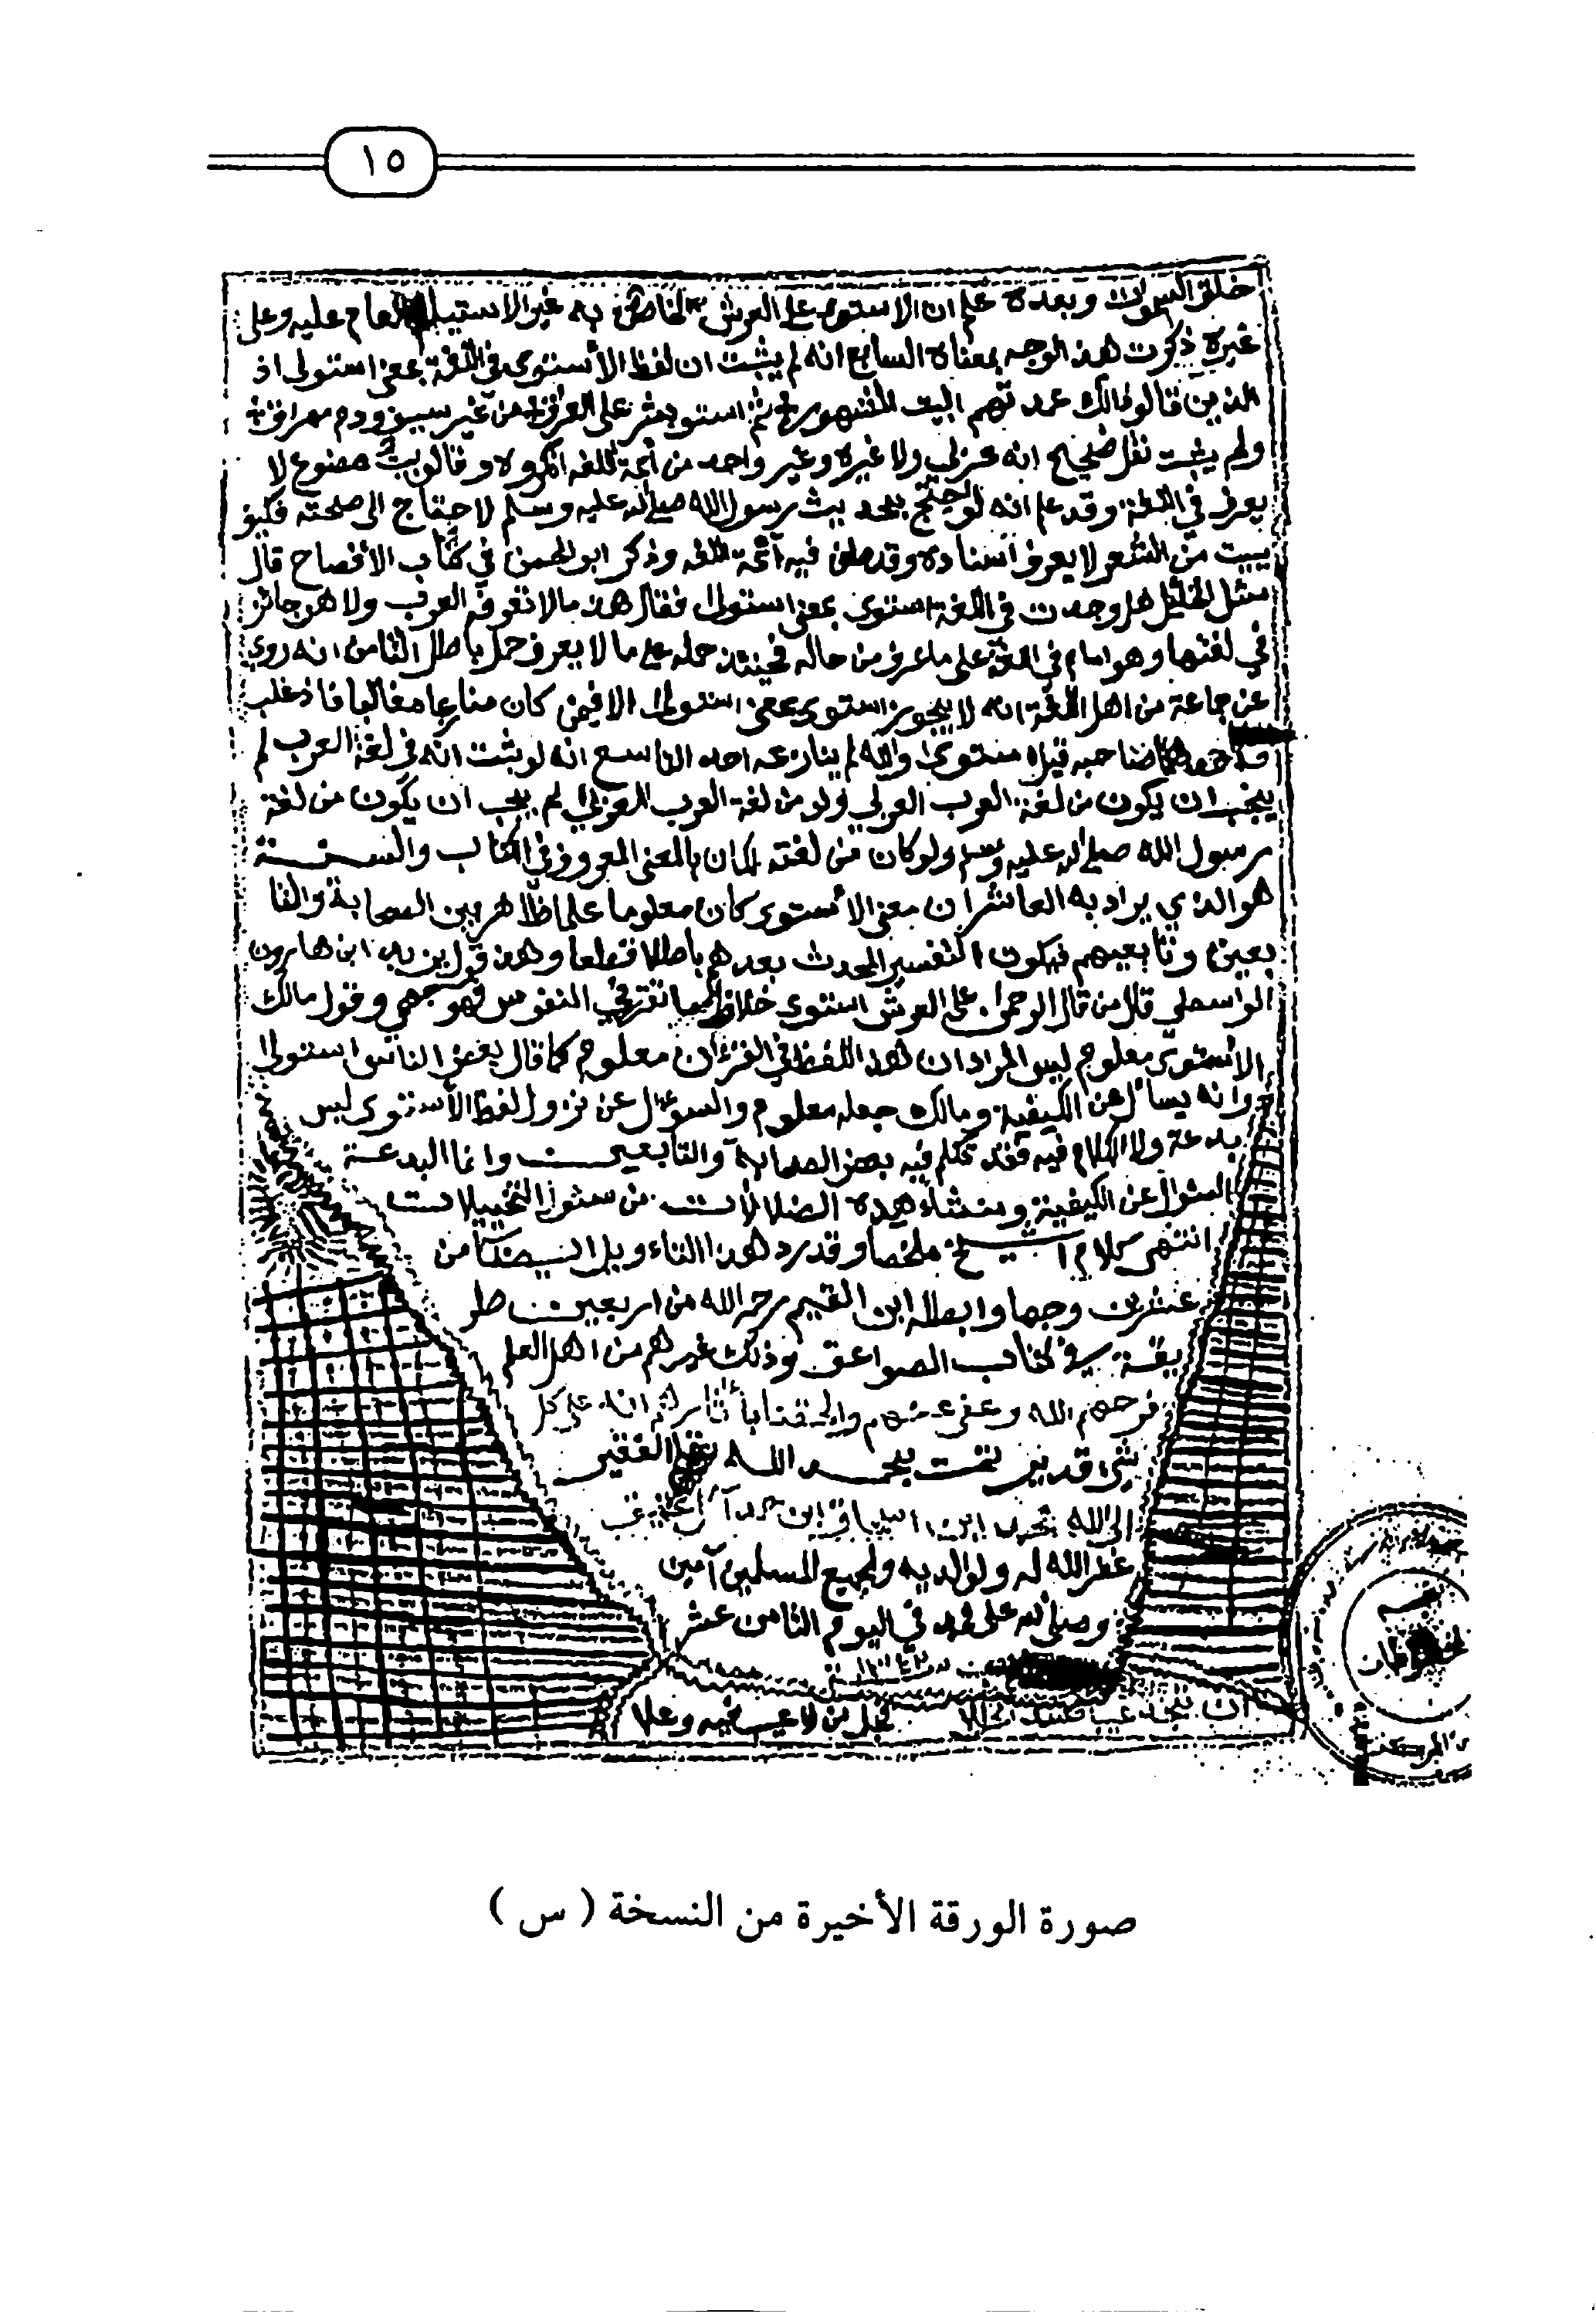 ١٥
خلق السموات وبعده علم ان الاستوى على العرش الخاص به غير الاستيلا العام عليه وعلى
غيره ذكرت هذ الوجه بمعناه السابع انه لم يثبت ان لفظ الأستوى في اللغة بمعنى استولى اذ
الذين قالو ذالك عمدتهم البيت المشهور ثم استوى بشر على العراق من غير سيف ودم مهراق
ولم يثبت نقل صحيح انه عربي ولا غيره وغير واحد من أئمة اللغه انكروه وقالو بيت مصنوع لا
يعرف في اللغة وقد علم انه لو احتج بحديث رسول الله صلى الله عليه وسلم لاحتاج الى صحته فكيف
ببيت من الشعر لا يعرف اسناده وقد طعن فيه أئمة اللغه وذكر ابو الحسن في كتاب الافصاح قال
سئل الخليل هل وجدت في اللغة استوى بمعنى استولى فقال هذ مالا تعرفه العرب ولا هو جائز
في لغتها وهو امام في اللغة على ما عرف من حاله فحينئذ حمله على ما لا يعرف حمل باطل الثامن انه روي
عن جماعة من اهل اللغة انه لا يجوز استوى بمعنى استولى الا فيمن كان منازعا مغالبا فاذ غلب
احدهما صاحبه قيل استوى والله لم ينازعه احد التاسع انه لو ثبت انه في لغة العرب لم
يجب ان يكون من لغة العرب العربي ولو من لغة العرب العربي لم يجب ان يكون من لغة
رسول الله صلى الله عليه وسلم ولو كان من لغته لكان بالمعنى المعروف في الكتاب والسنة
هو الذي يراد به العاشر ان معنى الأستوى كان معلوما علما ظاهر بين الصحابة والتا
بعين وتابعيهم فيكون التفسير المحدث بعدهم باطلا قطعا وهذ قول يزيد ابن هارون
الواسطي قال من قال الرحمن على العرش استوى خلاف ما تقرر في النفوس فهو جهمي وقول مالك
الأستوى معلوم ليس المراد ان هذ اللفظ في القرءان معلوم كما قال بعض الناس استولى
وانه يسأل عن الكيفية ومالك جعله معلوم والسؤال عن نزول لفظ الأستوى ليس
بدعة ولا الكلام فيه فقد تكلم فيه بعض الصحابة والتابعين وانما البدعة
السئوال عن الكيفية ومنشاء هذه الضلالات من سئو التخييلات
انتهى كلام الشيخ ملخصا وقد رد هذا التاءويل ايضا من
عشرين وجها وابطله ابن القيم رحمه الله من اربعين طر
يقة في كتاب الصواعق وذلك غيرهم من اهل العلم
فرحمهم الله وعفى عنهم والحقنا بأثارهم انه على كل
شيء قدير تمت بحمد الله بقلم الفقير
الى الله
غفر الله له ولوالديه ولجميع المسلمين آمين
وصلى الله على محمد في اليوم الثامن عشر
ان تجد عيبا فسد الخللا جل من لا عيب فيه وعلا
صورة الورقة الأخيرة من النسخة ( س )